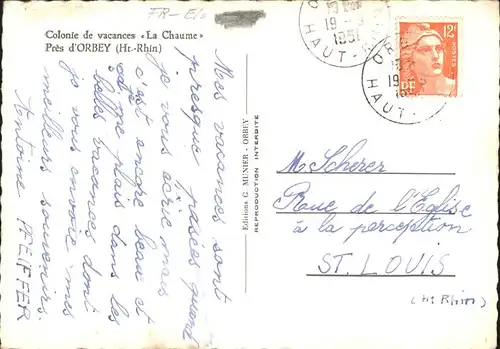 FR-E
Colonie de vacances «La Chaume»
Près d'ORBEY (Ht.-Rhin)
Mes vacances sont
presque passées quand
je vous écris mais
c'est encore beau et
je me plais dans les
belles vacances dont
je vous envoie mes
meilleurs souvenirs.
Antoine PFEIFFER
Editions G. MUNIER - ORBEY
REPRODUCTION INTERDITE
19
1951
HAUT-
O
19
HAUT-
12F
POSTES
RF
M Scherer
Rue de l'Eglise
à la perception
ST. LOUIS
(Ht Rhin)